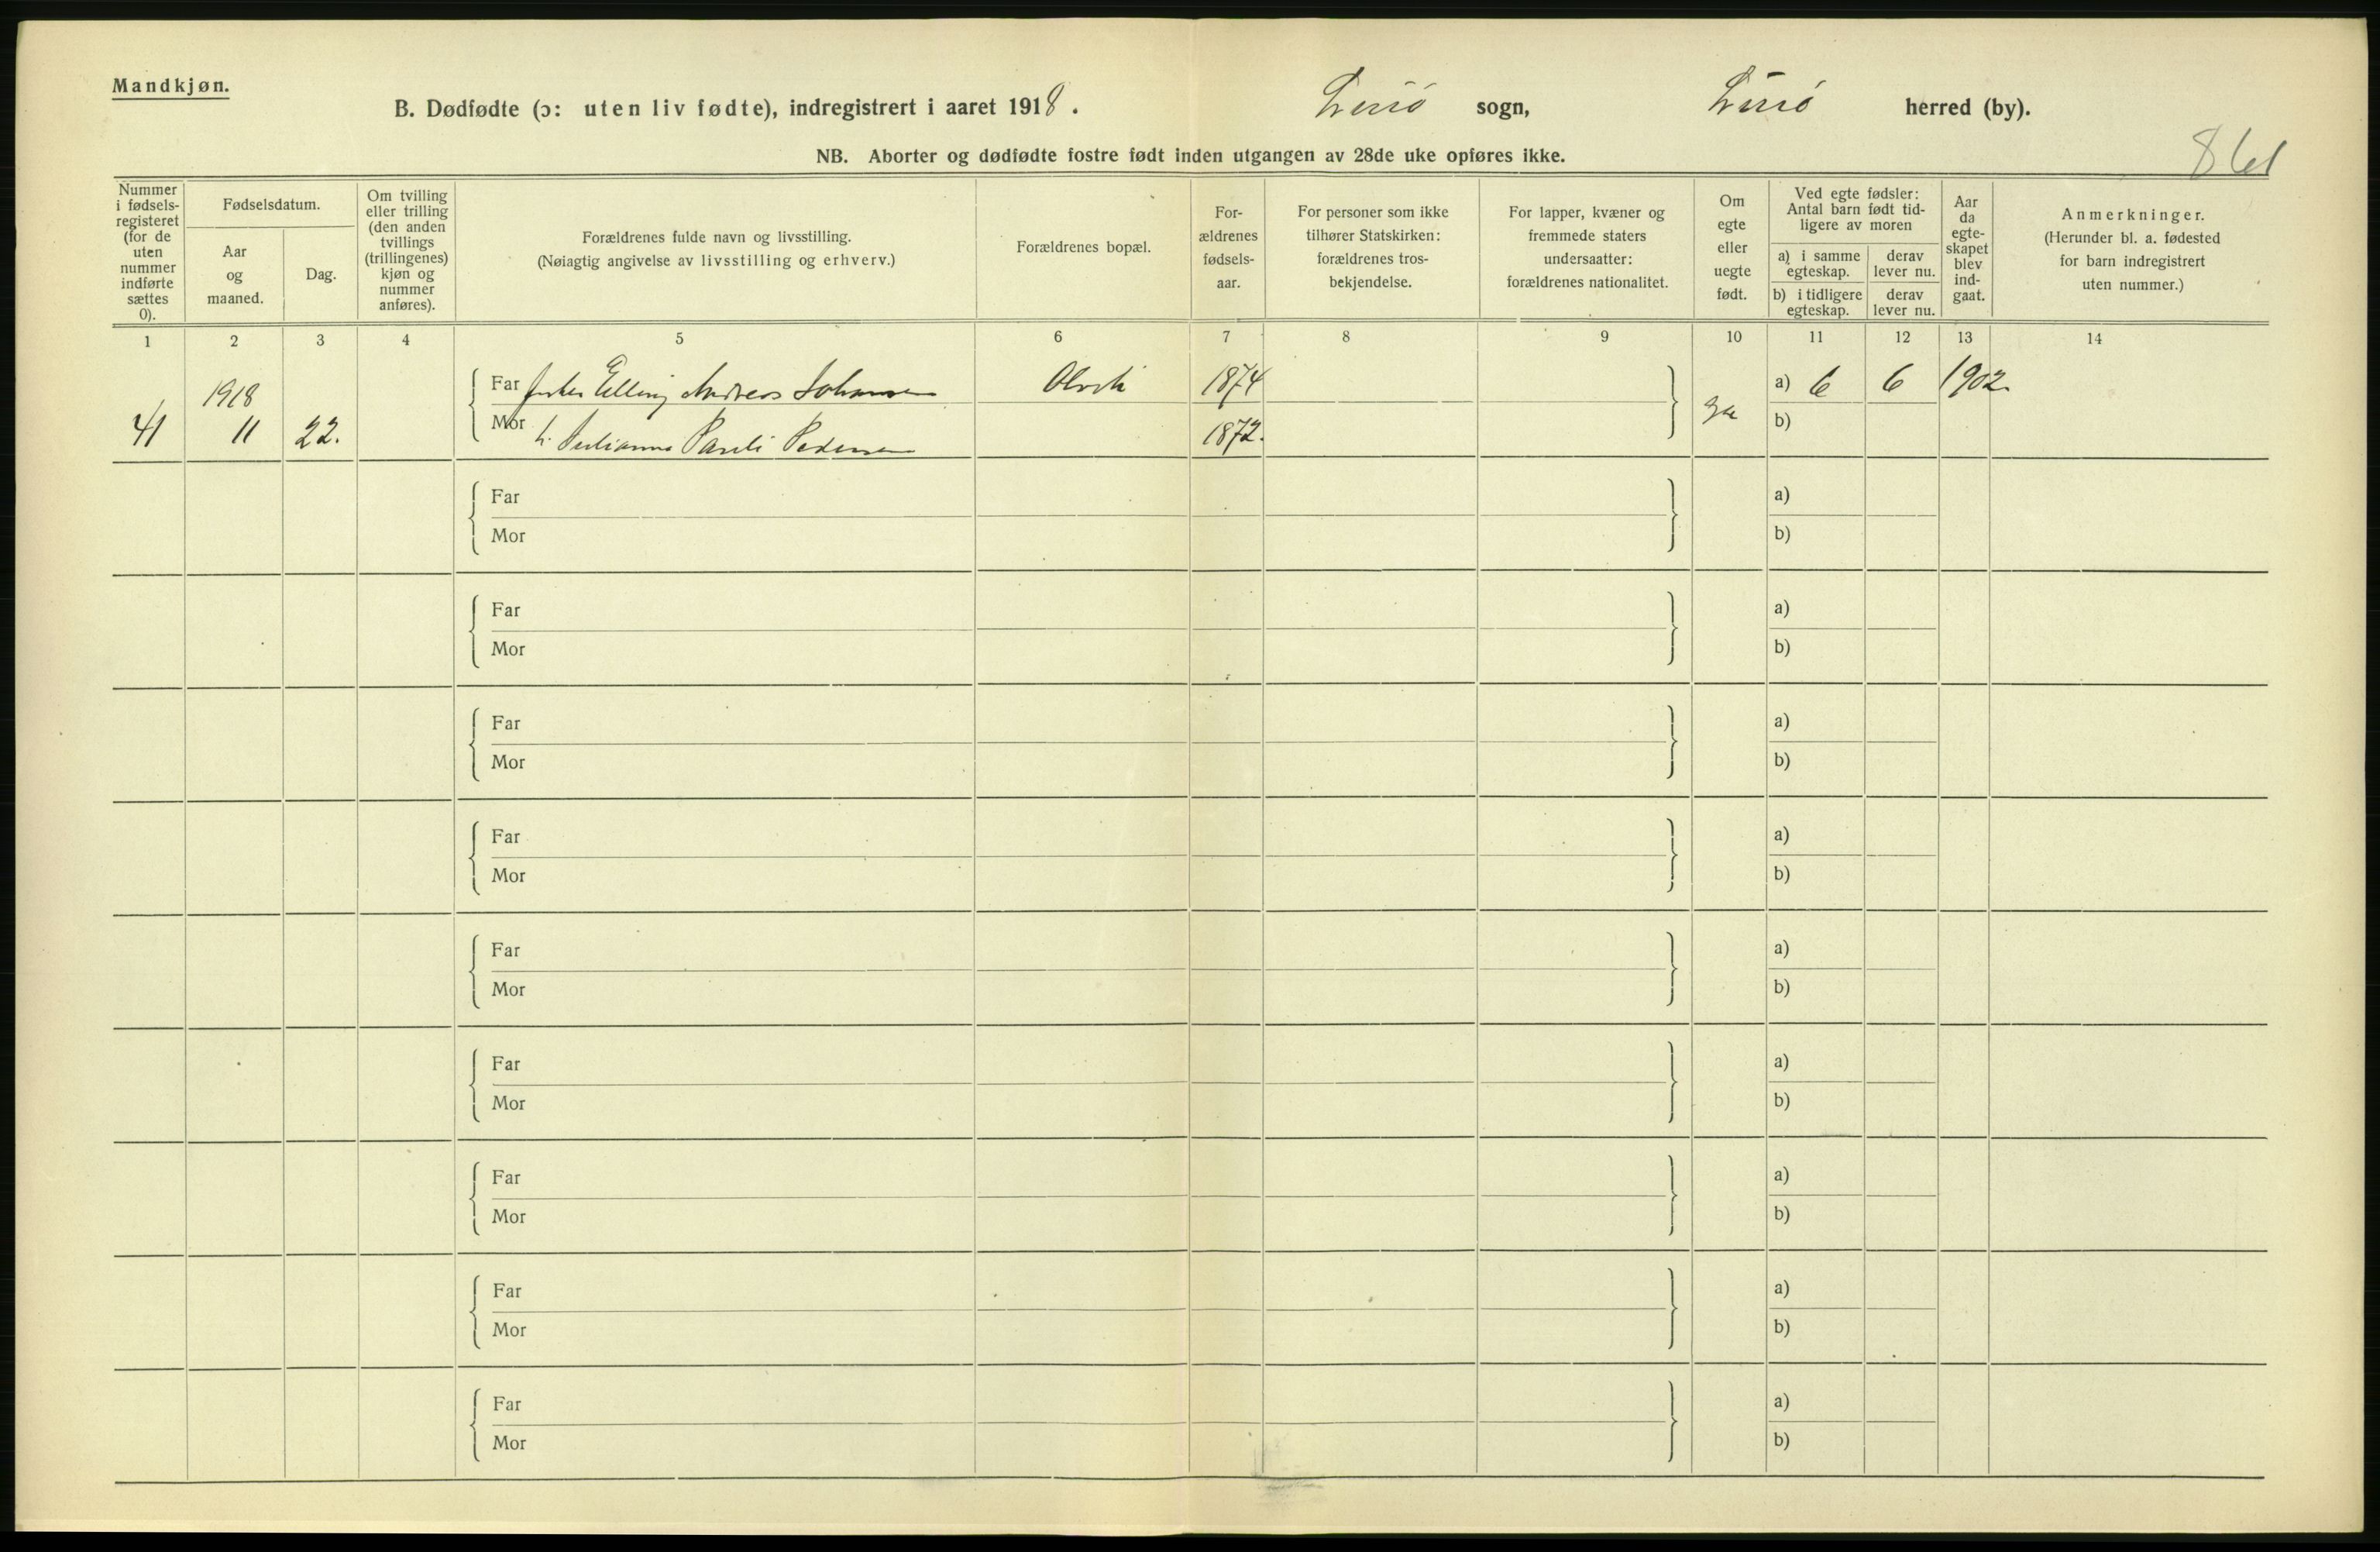 Mandkjøn.
B. Dødfødte (ɔ: uten liv fødte), indregistrert i aaret 1918. Lurö sogn, Lurö herred (by).
NB. Aborter og dødfødte fostre født inden utgangen av 28de uke opføres ikke.
Nummer i fødsels-registeret (for de uten nummer indførte sættes 0).
Fødselsdatum.
Aar og maaned.
Dag.
Om tvilling eller trilling (den anden tvillings (trillingenes) kjøn og nummer anføres).
Forældrenes fulde navn og livsstilling.
(Nøiagtig angivelse av livsstilling og erhverv.)
Forældrenes bopæl.
For-ældrenes fødsels-aar.
For personer som ikke tilhører Statskirken: forældrenes tros-bekjendelse.
For lapper, kvæner og fremmede staters undersaatter: forældrenes nationalitet.
Om egte eller uegte født.
Ved egte fødsler: Antal barn født tid-ligere av moren
a) i samme egteskap.
derav lever nu.
b) i tidligere egteskap.
derav lever nu.
Aar da egte-skapet blev ind-gaat.
Anmerkninger.
(Herunder bl. a. fødested for barn indregistrert uten nummer.)
1 2 3 4 5 6 7 8 9 10 11 12 13 14
1918 Far Elling Andreas Johansen 1874 a) 6 6 1902
41 11 22. Mor Julianna Pedersen 1872. b)
Far a)
Mor b)
Far a)
Mor b)
Far a)
Mor b)
Far a)
Mor b)
Far a)
Mor b)
Far a)
Mor b)
Far a)
Mor b)
Far a)
Mor b)
Far a)
Mor b)